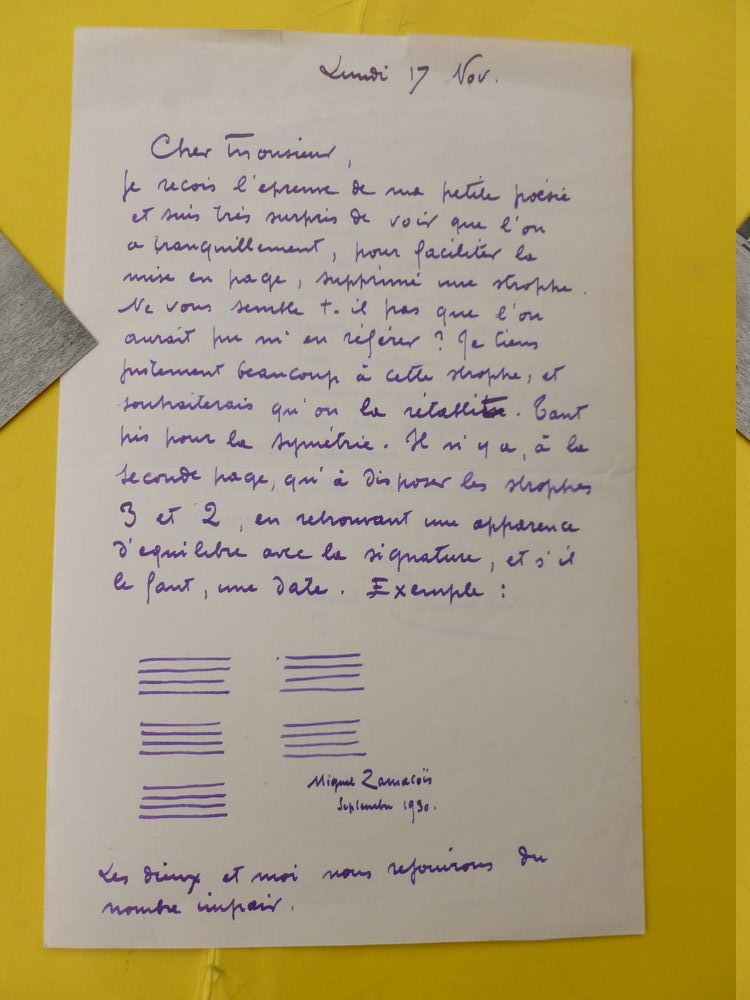 Lundi 17 Nov.
Cher Monsieur,
Je recois l'epreuve de ma petite poésie
et suis très surpris de voir que l'on
a tranquillement, pour faciliter la
mise en page, supprimé une strophe.
Ne vous semble t-il pas que l'on
aurait pu m'en référer ? Je tiens
justement beaucoup à cette strophe, et
souhaiterais qu'on la rétablisse. Tant
pis pour la symétrie. Il n'y a, à la
seconde page, qu'à disposer les strophes
3 et 2, en retrouvant une apparence
d'equilibre avec la signature, et s'il
le faut, une date. Exemple :
Miguel Zamacoïs
Septembre 1930.
Les dieux et moi nous rejouirons du
nombre impair.